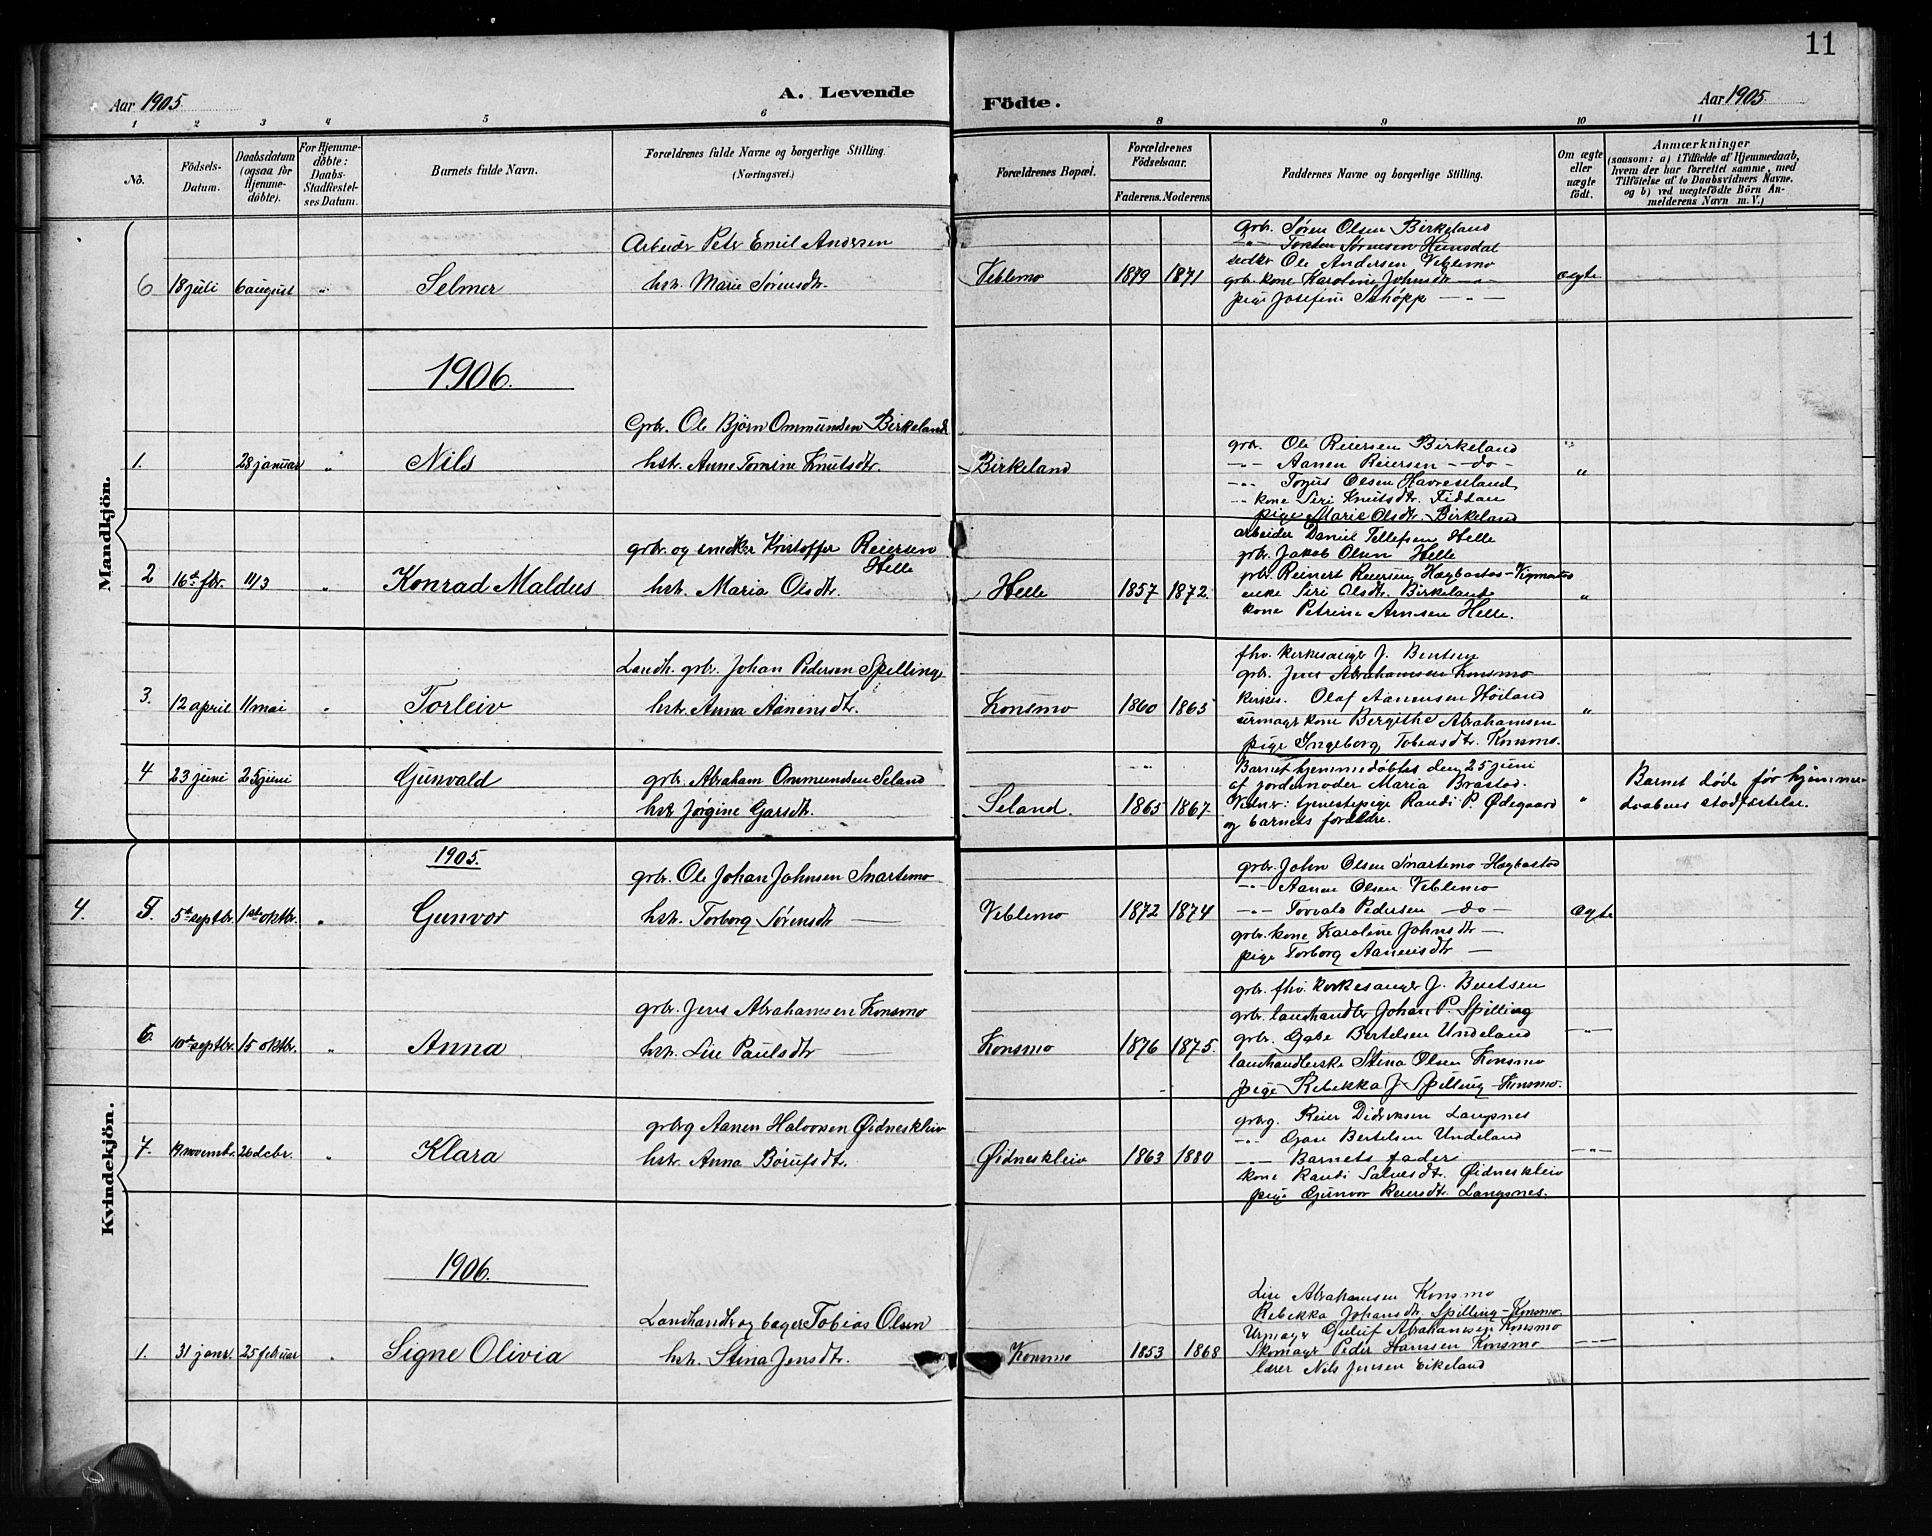 11
Aar 1905
A. Levende
Födte.
Aar 1905
1 2 3 4 5 6 8 9 10 11
No.
Födsels-
Datum.
Daabsdatum
(ogsaa for
Hjemme-
døbte).
For Hjemme-
døbte:
Daabs-
Stadfæstel-
ses Datum.
Barnets fulde Navn.
Forældrenes fulde Navne og borgerlige Stilling.
(Næringsvei.)
Forældrenes Bopæl.
Forældrenes
Födselsaar.
Faderens. Moderens.
Faddernes Navne og borgerlige Stilling.
Om ægte
eller
uægte
födt.
Anmærkninger
(saasom: a) i Tilfælde af Hjemmedaab,
hvem der har forrettet samme, med
Tilföielse af to Daabsvidners Navne.
og b) ved uægtefödte Börn An-
melderens Navn m. V.)
Mandkjön.
6 18 juli 6 august " Selmer
Arbeider Peter Emil Andersen
hstr. Marie Sørensdtr.
Veblemo 1879 1871
grb. Søren Olsen Birkeland
-"- Torsten Sørensen Heimsdal
Ole Andersen Veblemo
grb. kone Karoline Johnsdtr -"-
pige Josefine Schöpp -"-
ægte
1906.
1. 28 januar " Nils
Grbr. Ole Bjørn Ommundsen Birkeland
hstr. Anne Tomine Knutsdtr.
Birkeland
grb. Ole Reiersen Birkeland
-"- Aanen Reiersen -do-
-"- Olsen Havreseland
-"- kone Siri Knutsdtr. Fiddan
pige Marie Olsdtr. Birkeland
"
2 16de fbr. 11/3 " Konrad Maldus
grbr. og snedker Kristoffer Reiersen
Helle
hstr. Maria Olsdtr.
Helle 1857 1872.
arbeider Daniel Tellefsen Helle
grb. Jakob Olsen Helle
grb. Reinert Reiersen Hægbostad-Vigmostad
enke Siri Olsdtr. Birkeland
kone Petrine Arnesen Helle.
"
3. 12 april 11 mai " Torleiv
Landh. grbr. Johan Pedersen Spilling
hstr. Anna Aanensdtr.
Konsmo 1860 1865
fhv. kirkesanger J. Bentsen
grb. Jens Abrahamsen Konsmo
kirkes. Olaf Aanensen Høiland
urmagr kone Bergithe Abrahamsen
pige Ingeborg Tobiasdtr. Konsmo.
"
4 23 juni 25 juni Gunvald
grbr. Abraham Ommundsen Seland
hstr. Jørgine Garsdtr.
Seland. 1865 1867.
Barnet hjemmedøbtes den 25 juni
af jordemoder Maria Brastad.
Vidner: tjenestepige Randi P. Ødegaard
og barnets forældre.
"
Barnet døde før hjemme-
daabens stadfæstelse.
Kvindekjön.
1905.
4. 5. 5te septbr. 1ste oktbr. " Gunvor
grbr. Ole Johan Johnsen Snartemo
hstr. Torborg Sørensdtr
Veblemo 1872 1874
grbr. John Olsen Snartemo-Hægbostad
-"- Aanen Olsen Veblemo
-"- Torvald Pedersen -do-
grbr. kone Karoline Johnsdtr
pige Torborg Aanensdtr
ægte
6. 10de septbr. 15 oktbr. " Anna
grbr. Jens Abrahamsen Konsmo
hstr. Lise Paulsdtr
Konsmo 1876 1875.
grbr. fhv. kirkesanger J. Bentsen
grbr. landhandler Johan P. Spilling
grbr. Bertelsen Undeland
landhandlerske Stina Olsen Konsmo
pige Rebekka J. Spilling-Konsmo.
-"-
7. 19 novembr. 26 dcbr. " Klara
grbrg Aanen Halvorsen Øidneskleiv
hstr. Anna Børufsdtr.
Øidneskleiv 1863 1880
grbrg. Reier Didriksen Langnes
-"- Bertelsen Undeland
-"- Barnets fader
kone Randi Salvesdtr. Øidneskleiv
pige Gunvor Reiersdtr. Langsnes.
-"-
1906.
1. 31 janr. 25 februar " Signe Olivia
Landhandlr og bager Tobias Olsen
hstr. Stina Jensdtr.
Konsmo 1853 1868
Lise Abrahamsen Konsmo
Rebekka Johansdtr. Spilling-Konsmo
Urmagr Abrahamsen Konsmo
Skomagr Peder Hanssen Konsmo
lærer Nils Jensen Eikeland
-"-